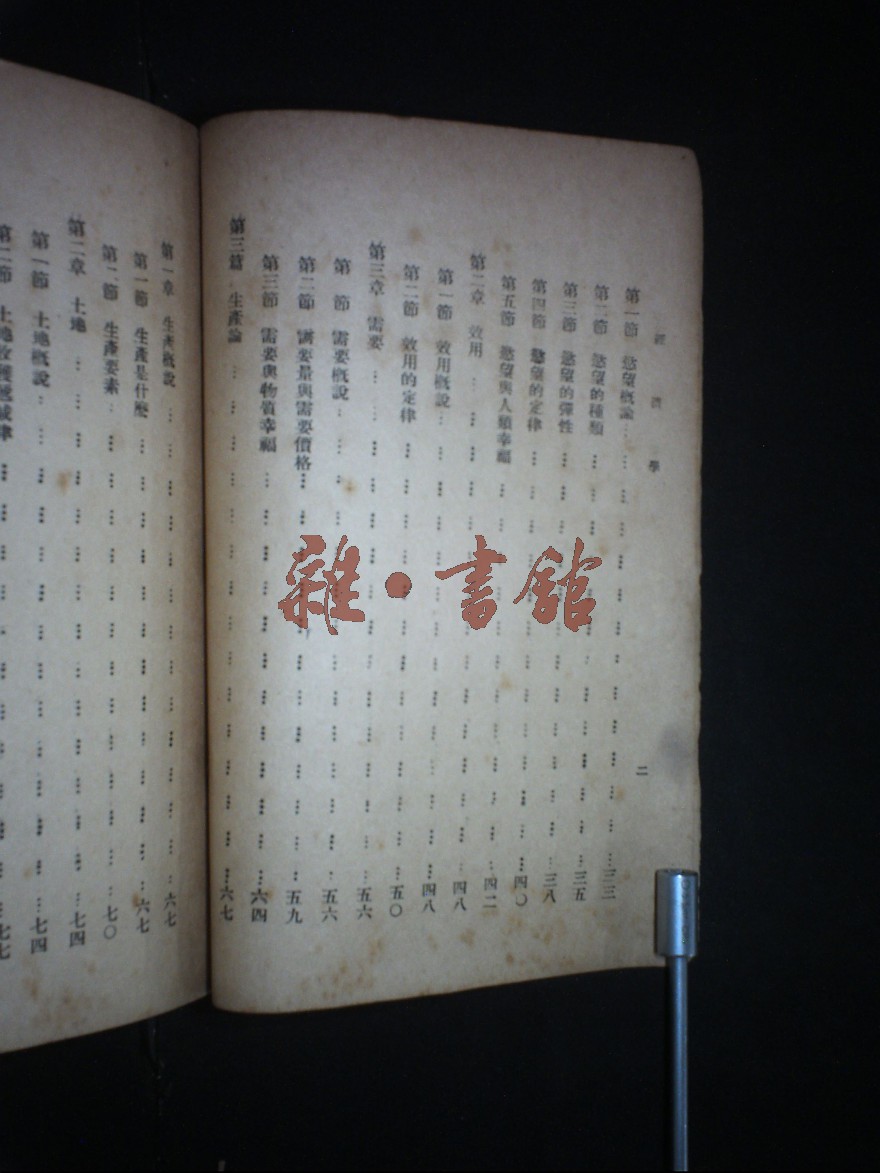 經濟學 二
第一節 慾望概論 三三
第二節 慾望的種類 三五
第三節 慾望的彈性 三八
第四節 慾望的定律 四〇
第五節 慾望與人類幸福 四二
第二章 效用 四八
第一節 效用概說 四八
第二節 效用的定律 五〇
第三章 需要 五六
第 節 需要概說 五六
第二節 需要量與需要價格 五九
第三節 需要與物質幸福 六四
第三篇 生產論 六七
第一章 生產概說 六七
第一節 生產是什麼 六七
第二節 生產要素 七〇
第二章 土地 七四
第一節 土地概說 七四
第二節 土地收穫遞減律 七七
雜•書館